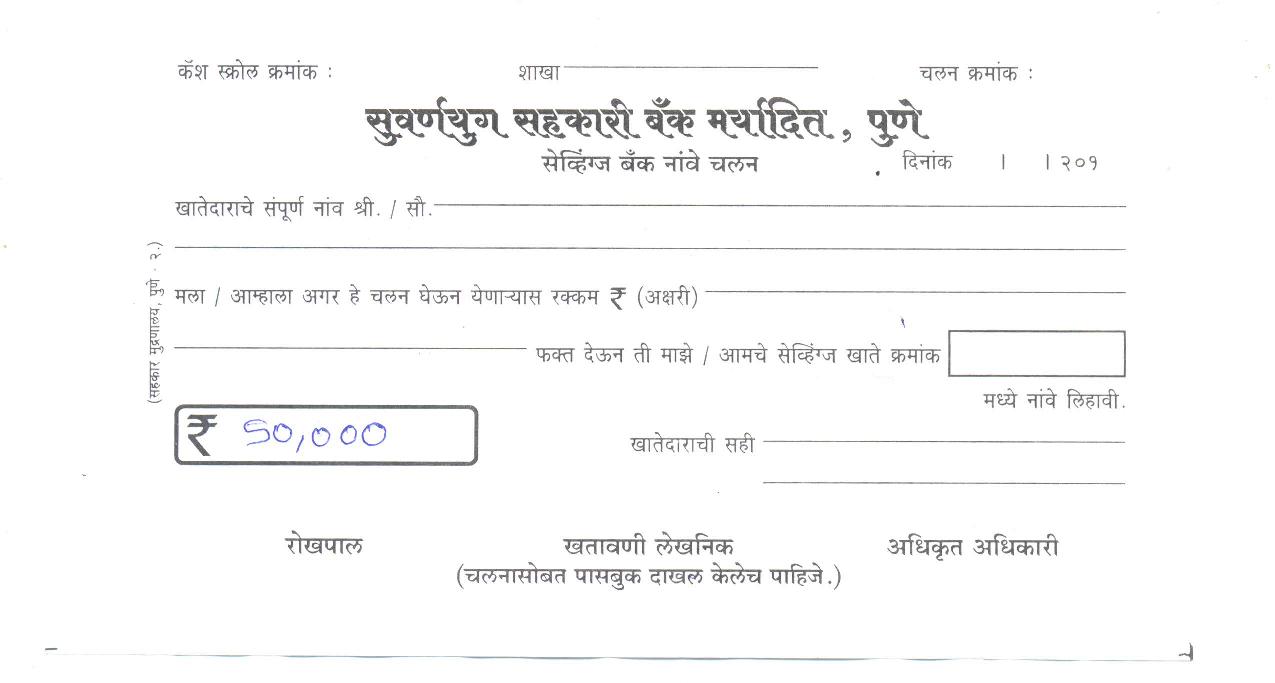 कॅश स्क्रोल क्रमांक : शाखा चलन क्रमांक :
सुवर्णयुग सहकारी बँक मर्यादित, पुणे
सेव्हिंग्ज बँक नांवे चलन दिनांक । । २०१
खातेदाराचे संपूर्ण नांव श्री. / सौ.
मला / आम्हाला अगर हे चलन घेऊन येणाऱ्यास रक्कम ₹ (अक्षरी)
फक्त देऊन ती माझे / आमचे सेव्हिंग्ज खाते क्रमांक
मध्ये नांवे लिहावी.
₹ 50,000
खातेदाराची सही
रोखपाल खतावणी लेखनिक अधिकृत अधिकारी
(चलनासोबत पासबुक दाखल केलेच पाहिजे.)
(सहकार मुद्रणालय, पुणे - २.)